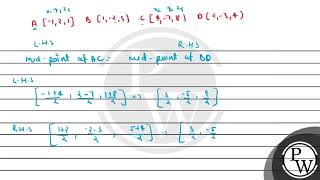 x₁ y₁ z₁ x₂ y₂ z₂
A [-1,2,1] B [1,-2,5] C [4,-7,8] D [2,-3,4]
L.H.S R.H.S
mid-point of AC = mid-point of BD
L.H.S
[-1+4/2, 2-7/2, 1+8/2] => [3/2, -5/2, 9/2]
R.H.S [1+2/2, -2-3/2, 5+4/2] => [3/2, -5/2
PW